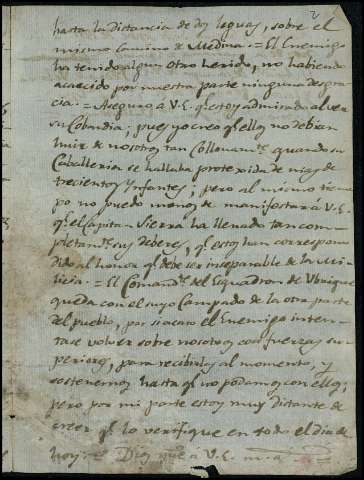 2
hasta la distancia de dos leguas, sobre el
mismo camino de Medina. = El Enemigo
ha tenido algun otro herido, no habiendo
acaecido por nuestra parte ninguna desgra
cia. = Aseguro a V.E. qe. estoy admirado al ver
su Cobardia; pues yo creo qe. ellos no debian
huir de nosotros tan quando su
Caballeria se hallaba protexida de mas de
trecientos Infantes; pero al mismo tiem
po no puedo menos de manifestar á V.E.
qe. el Capitan Sierra ha llenado tan com
pletamte. sus deberes, qe. estos han correspon
dido al honor qe. debe ser inseparable de la Mi
licia. = El Comandte. del Esquadron de Ubrique
queda con el suyo Campado de la otra parte
del pueblo, por si acaso el Enemigo inten
tase volver sobre nosotros con fuerzas su
periores, para recibirlos al momento, y
sostenernos hasta qe. no podamos con ellos;
pero por mi parte estoy muy distante de
creer qe. lo verifique en todo el dia de
hoy. = Dios gue. a V.E. m. a.